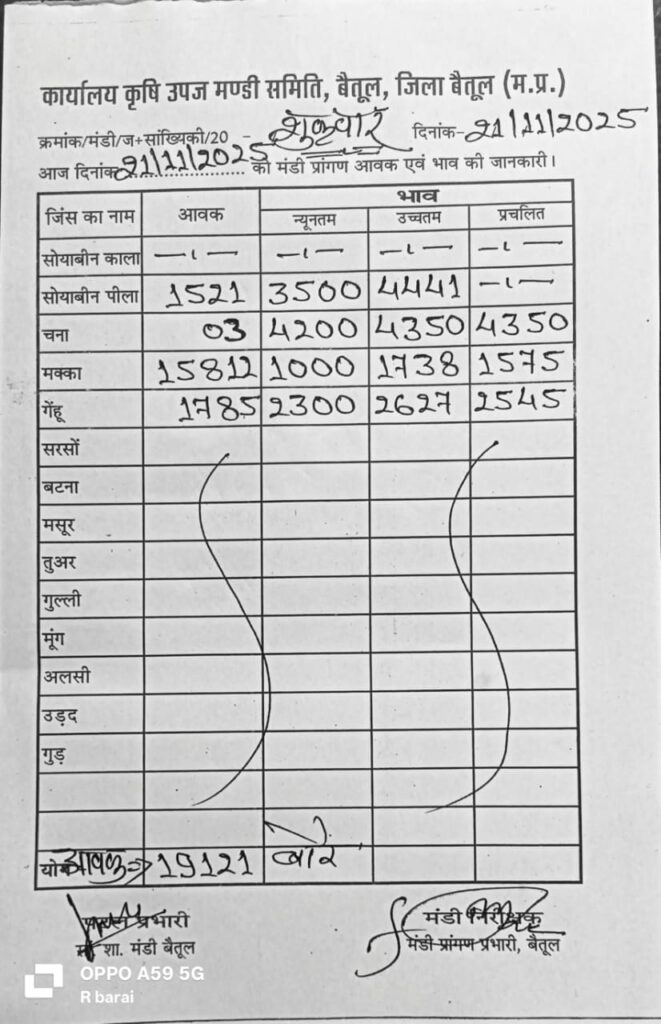 कार्यालय कृषि उपज मण्डी समिति, बैतूल, जिला बैतूल (म.प्र.)
क्रमांक/मंडी/ज+सांख्यिकी/20 - शुक्रवार दिनांक-21/11/2025
आज दिनांक 21/11/2025 को मंडी प्रांगण आवक एवं भाव की जानकारी।
भाव
जिंस का नाम आवक न्यूनतम उच्चतम प्रचलित
सोयाबीन काला —ı— —ı— —ı— —ı—
सोयाबीन पीला 1521 3500 4441 —ı—
चना 03 4200 4350 4350
मक्का 15812 1000 1738 1575
गेंहू 1785 2300 2627 2545
सरसों
बटना
मसूर
तुअर
गुल्ली
मूंग
अलसी
उड़द
गुड़
आवक => 19121 बोरे
प्रभारी मंडी निरीक्षक
शा. मंडी बैतूल मंडी प्रांगण प्रभारी, बैतूल
OPPO A59 5G
R barai